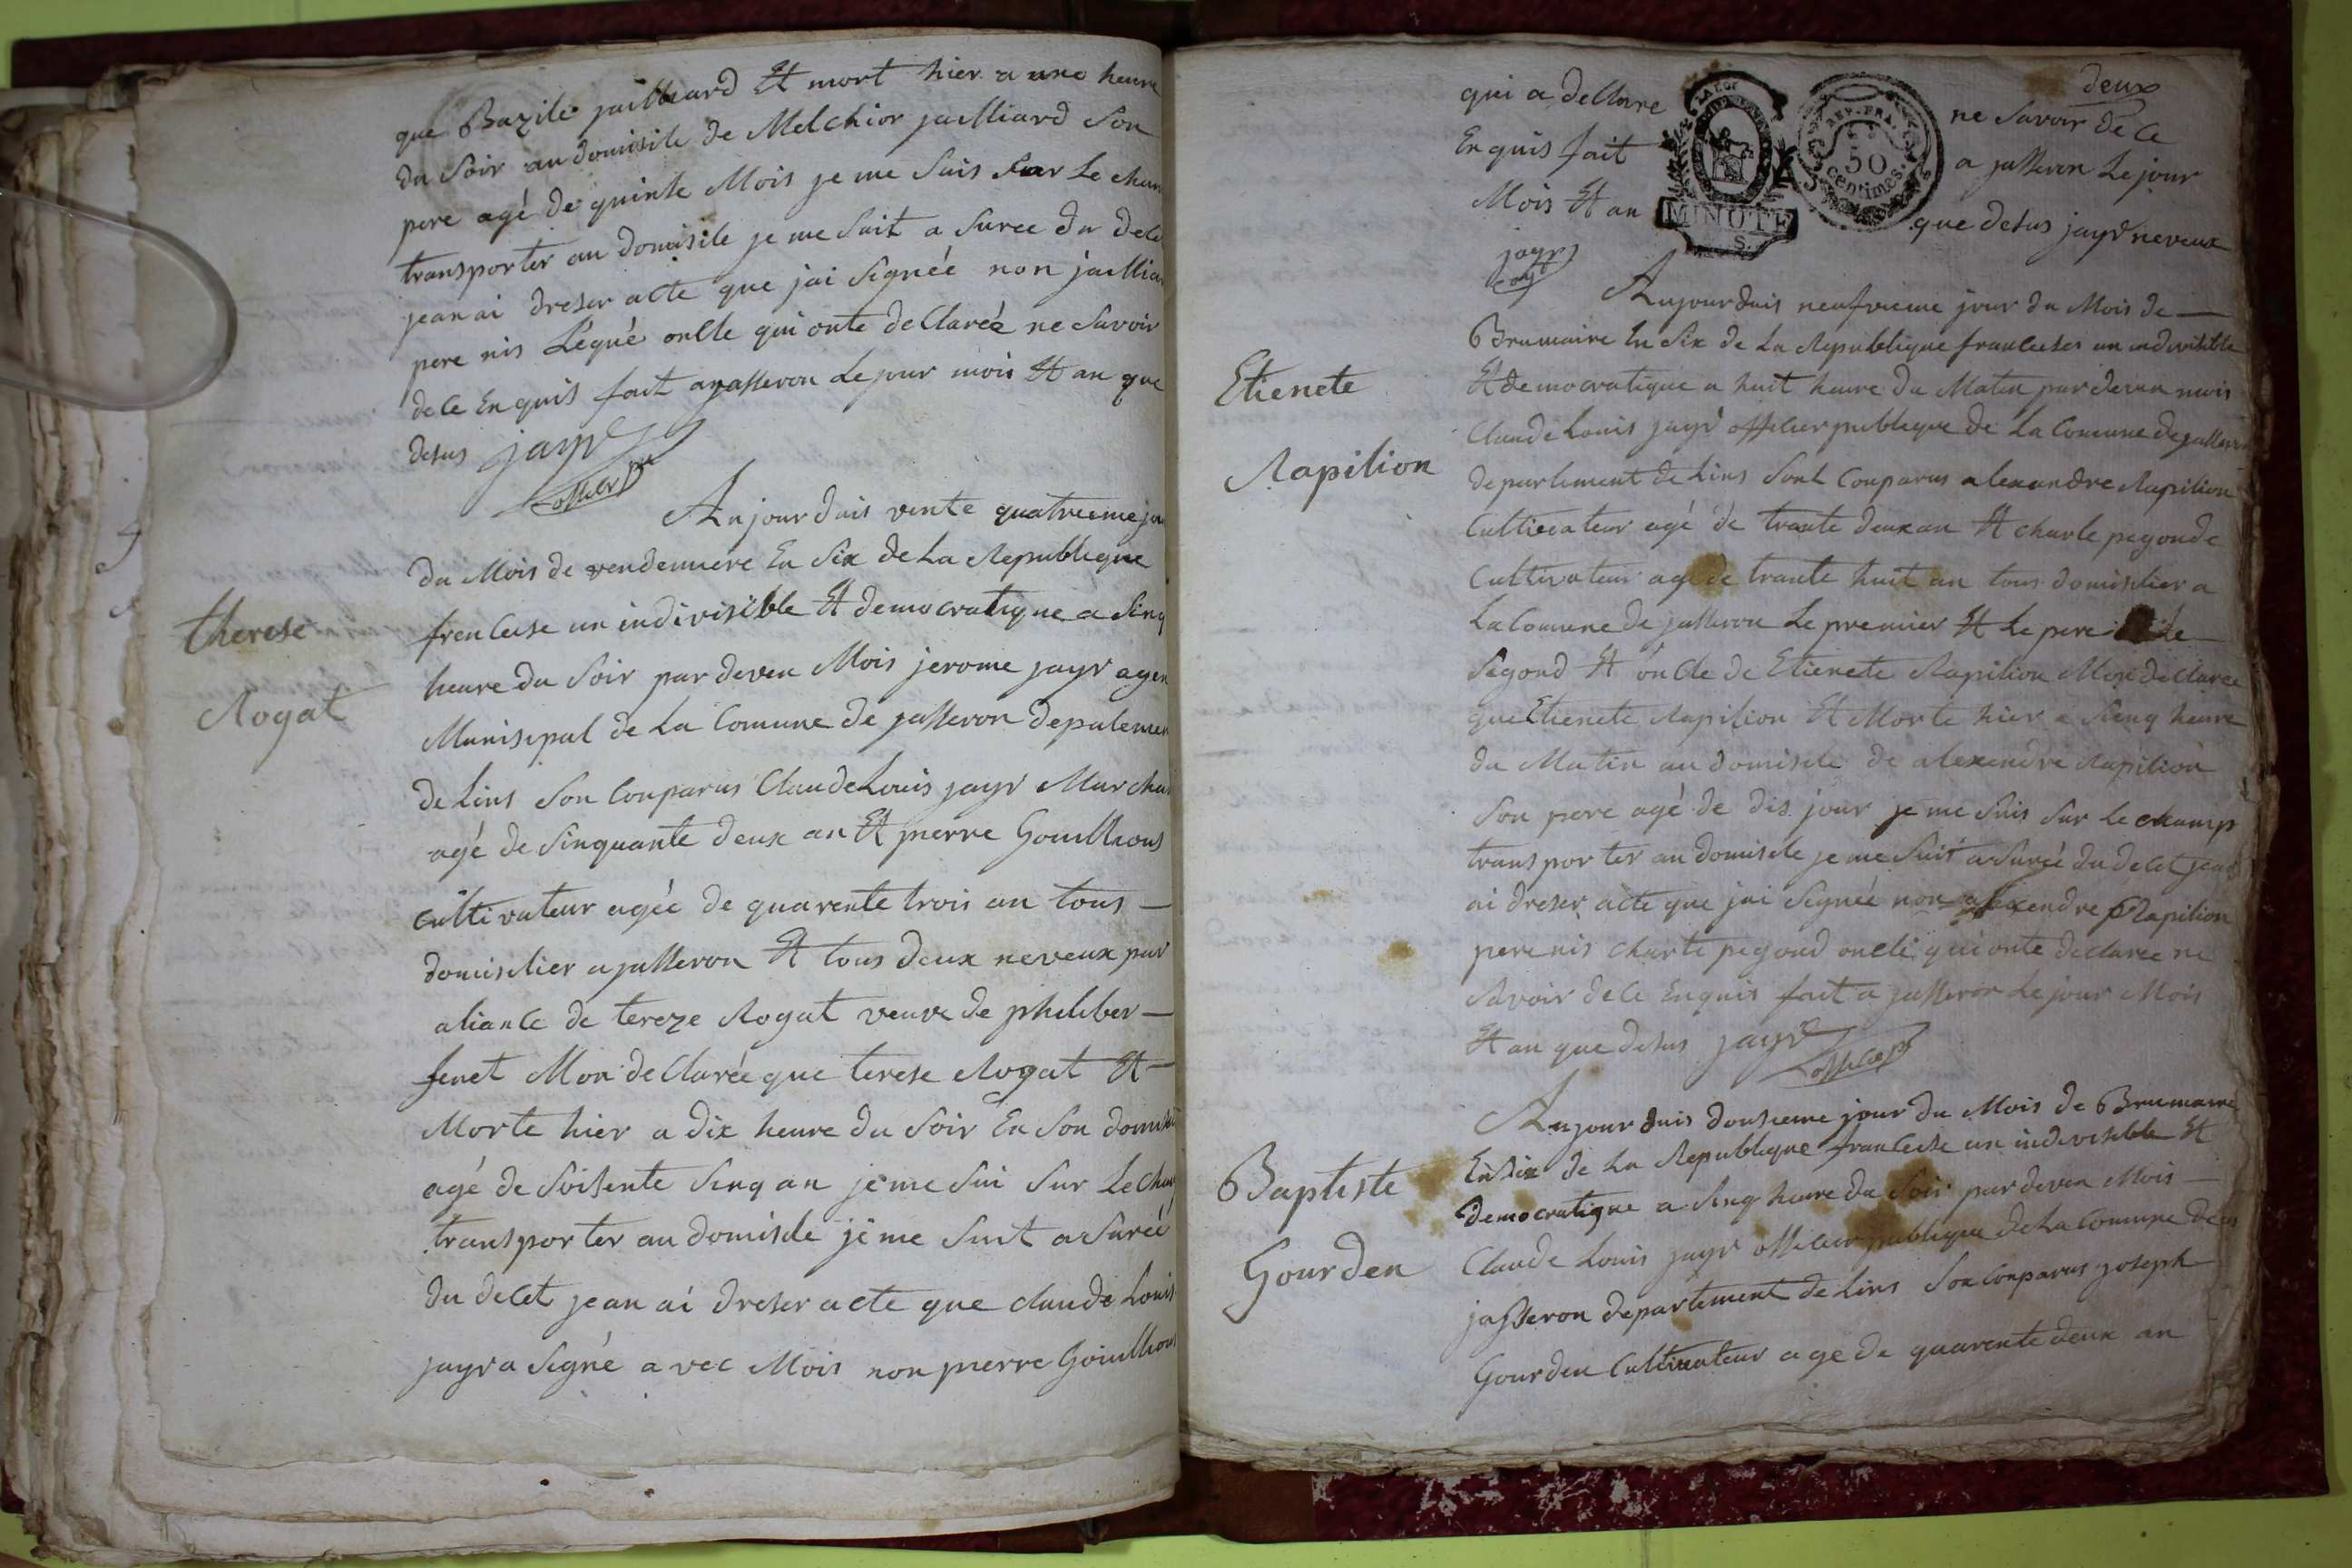 que Bazile jailliard Et mort hier a une heure
du Soir au domisile de Melchior jailliard Son
pere agé de quinte Mois je me Suis Sur Le cham
transporter au domisile je me Suit a Suree du dece
jean ai dreser acte que jai Signéé non jaillia
pere nis Légué onlle qui onte declaréé ne Savoir
dele Enquis fait a jasseron Le jour mois Et an que
desus jayr
officier p
Aujourduis vente quatrieme jou
du Mois de vendemiere En Six de La Republique
frenlaise un indivisible Et democratique a Sinq
therese
heure du Soir par deven Mois jerome jayr agen
Rogat
Munisipal de La Comune de jasseron depatemen
de Lins Son Conparus Claude Louis jayr Marchan
agé de Sinquante deux an Et pierre Gouillioux
Cultivateur agéé de quarente trois an tous
domislier a jasseron Et tous deux neveux par
alianle de tereze Rogat veuve de philiber
fenet Mon declaréé que terese Rogat Et
Morte hier a dix heure du Soir En Son domisi
agé de Soisente Sinq an je me Sui Sur Le cham
transporter au domisile je me Suit a Suréé
du decet jean ai dreser acte que claude Louis
jayr a Segné avec Mois non pierre Gouilliou
deux
qui a declare ne Savoir de le
Enquis fait a jasseron Le jour
Mois Et an que desus jayr neveux
LA LOI
MINUTE
S.
REP. FRA.
50
centimes.
jayr
Aujourduis neufvieme jour du Mois de
Brumaire En Six de La Republique franleise un indivisible
Etienete
Et democratique a huit heure du Matin par devan mois
Claude Louis jayr offilier publique de La Comune de jasseron
Rapilion
departement de Lins Sont Conparus alexandre Rapilion
Cultivateur agé de trante deux an Et charle pegonde
Cultivateur agé de trante huit an tous domislier a
La Comune de jasseron Le premier Et Le pere Le
Segond Et oncle de Etienete Rapilion Mon declaree
que Etienete Rapilion Et Morte hier a Sinq heure
du Matin au domisile de alexendre Rapilion
Son pere agé de dis jour je me Suis Sur Le champ
transporter au domisile je me Suit a Suréé du decet jean
ai dreser acte que jai Signéé non alexendre Rapilion
pere nis charle pegond oncle qui onte declaree ne
Savoir dele Enquis fait a jasseron Le jour Mois
Et an que desus jayr
officier p
Aujourduis dousieme jour du Mois de Brumaire
Baptiste
En Six de La Republique franleise un indivisible Et
democratique a Sinq heure du Soir par devan Mois
Gourden
Claude Louis jayr offilier publique de La Comune de
jasseron departement de Lins Son Conparus joseph
Gourden Cultivateur age de quarente deux an